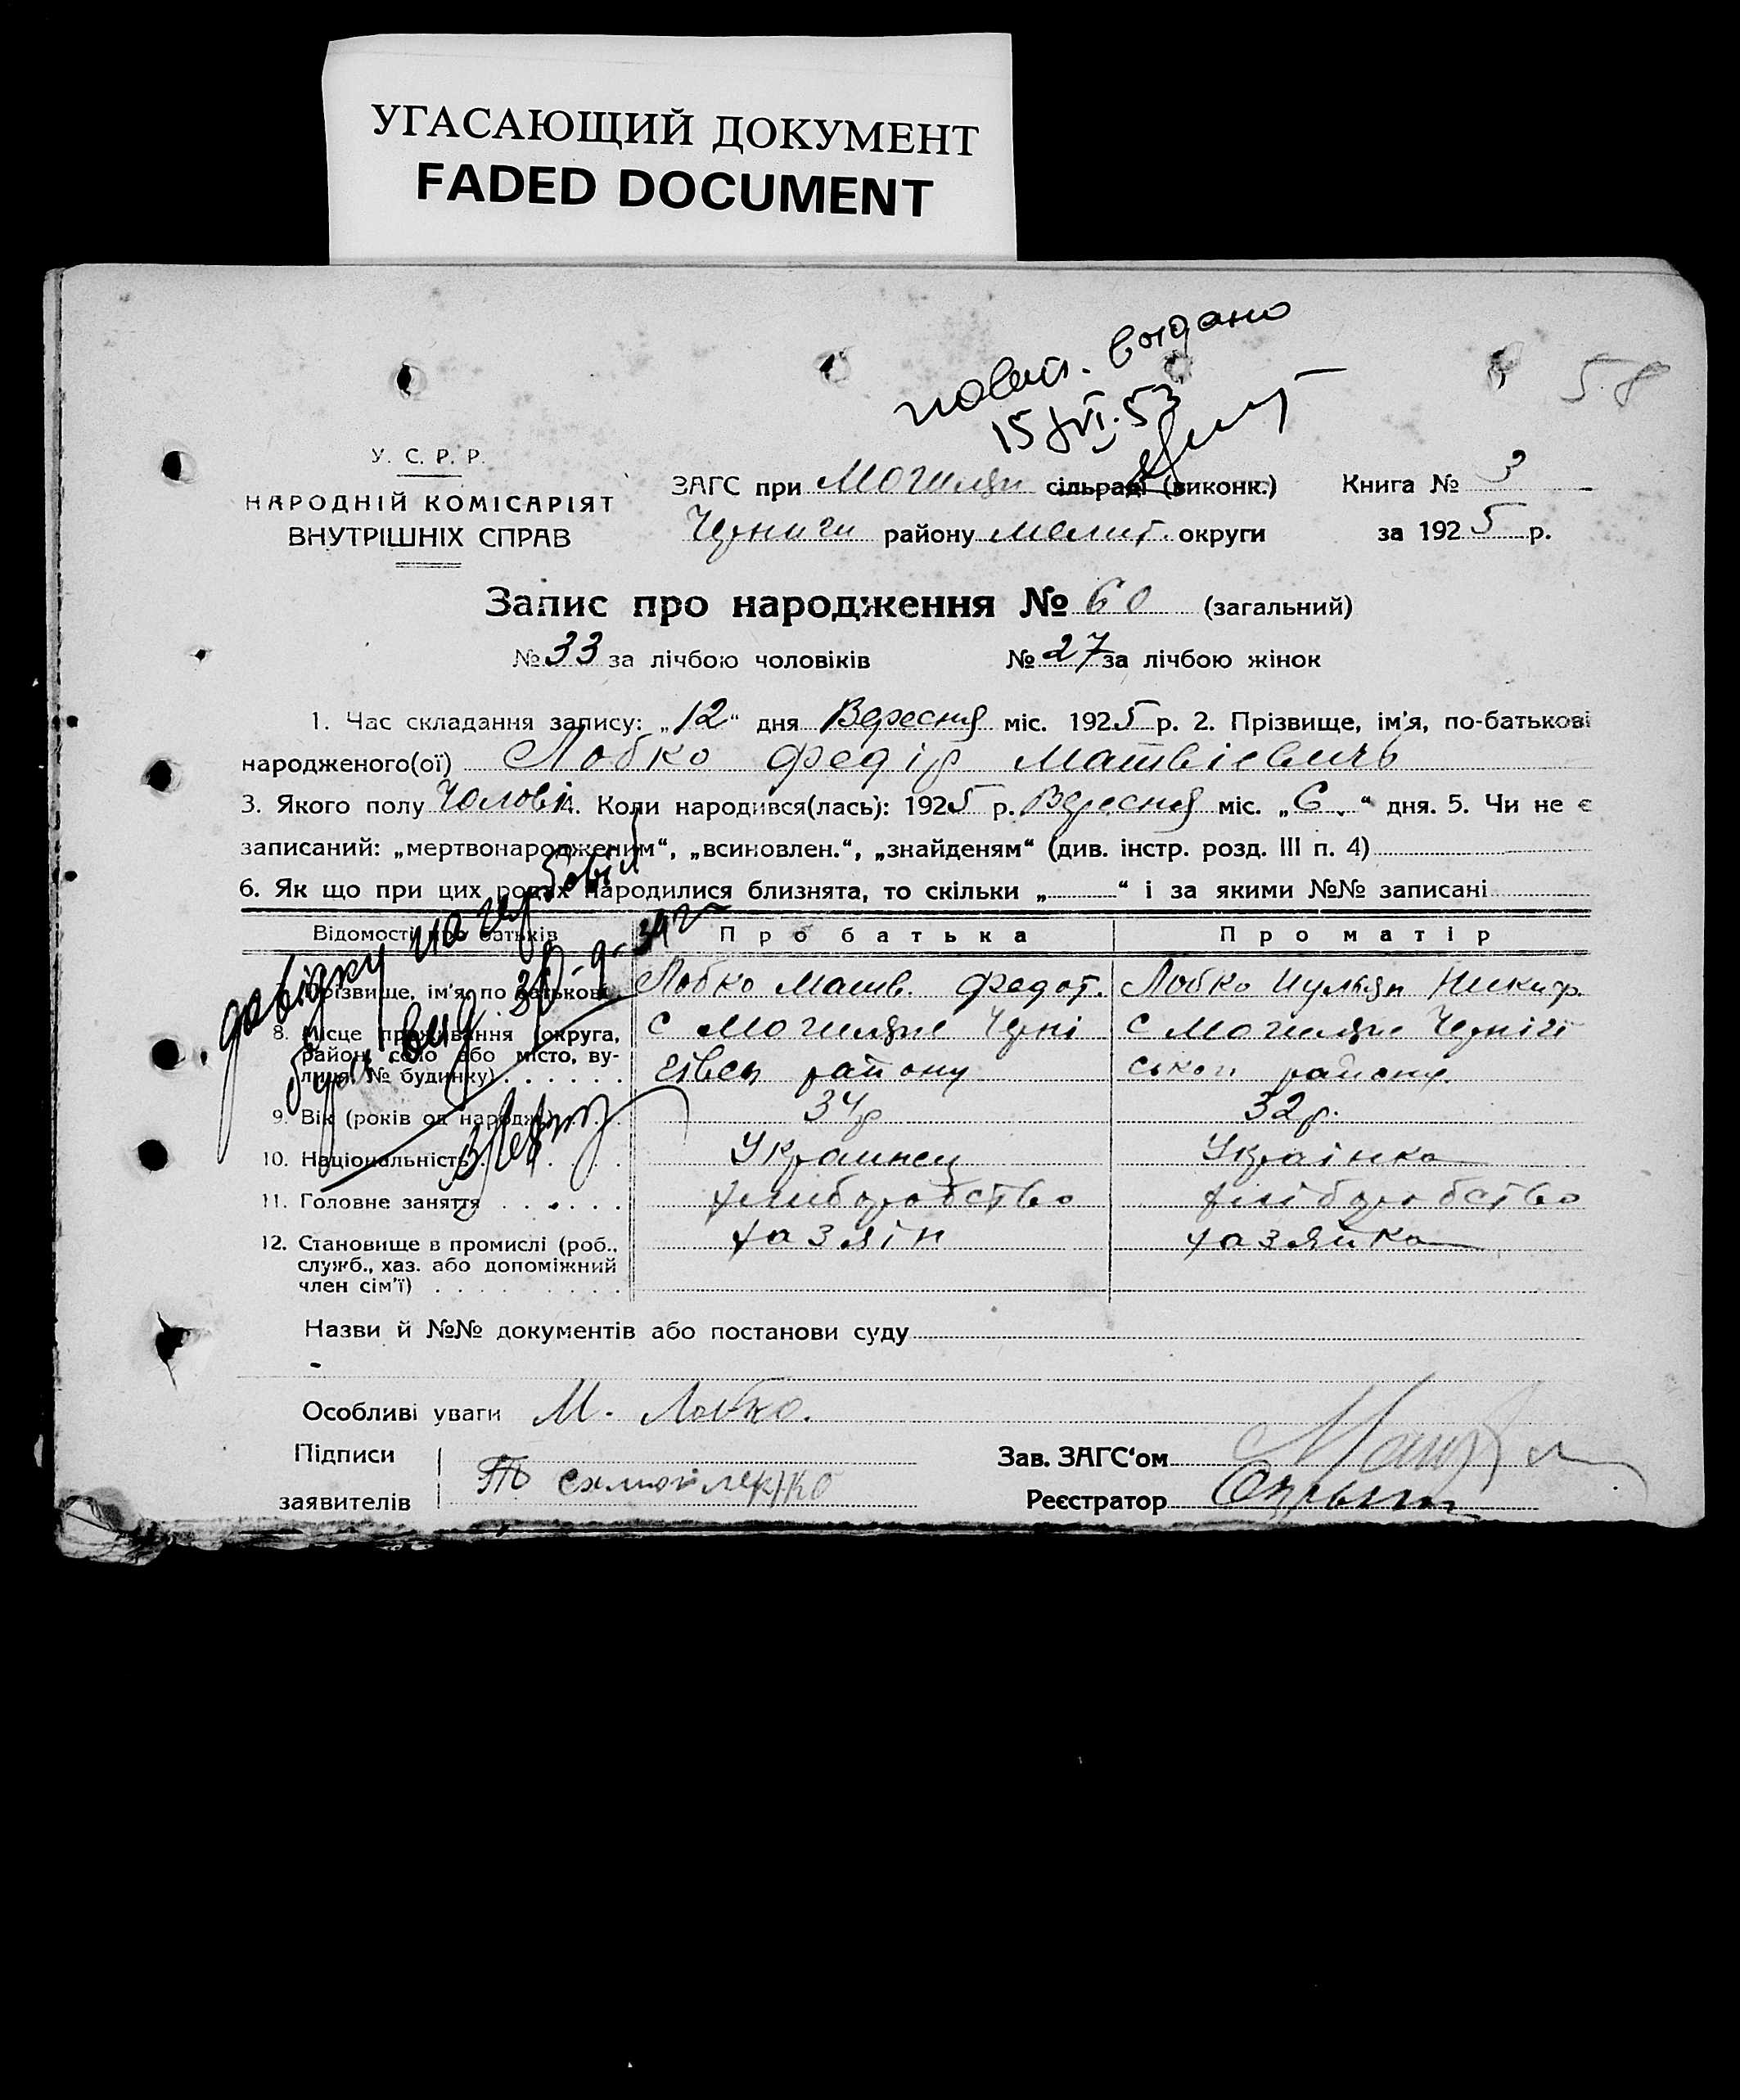 УГАСАЮЩИЙ ДОКУМЕНТ
FADED DOCUMENT
58
повт. видано
15/VI.53
У. С. Р. Р.
НАРОДНІЙ КОМІСАРІЯТ
ВНУТРІШНІХ СПРАВ
ЗАГС при сільраді (виконк.) Книга № 3
району мелит. округи за 1925 р.
Запис про народження № 60 (загальний)
№ 33 за лічбою чоловіків № 27 за лічбою жінок
1. Час складання запису: „12“ дня Вересня міс. 1925 р. 2. Прізвище, ім'я, по-батькові
народженого(ої) Лобко Федір Матвієвичь
3. Якого полу Чолові 4. Коли народився(лась): 1925 р. Вересня міс. „6“ дня. 5. Чи не є
записаний: „мертвонародженим“, „всиновлен.“, „знайденям“ (див. інстр. розд. III п. 4)
6. Як що при цих родах народилися близнята, то скільки „ “ і за якими №№ записані
довідку на
вид. 30-9-39 г
Відомості про батьків Про батька Про матір
7. Прізвище, ім'я, по батькові Лобко Матв. Федот. Лобко Никиф.
8. Місце проживання (округа, район, село або місто, вулиця, № будинку)
с
району
с
району
9. Вік (років од народж.) 34 р 32 р.
10. Національність Украинец Українка
11. Головне заняття хлиборобство хліборобство
12. Становище в промислі (роб., хазяін хазяйка
служб., хаз. або допоміжний
член сім'ї)
Назви й №№ документів або постанови суду
Особливі уваги М. Лобко.
Підписи
заявителів
Зав. ЗАГС'ом
Реєстратор